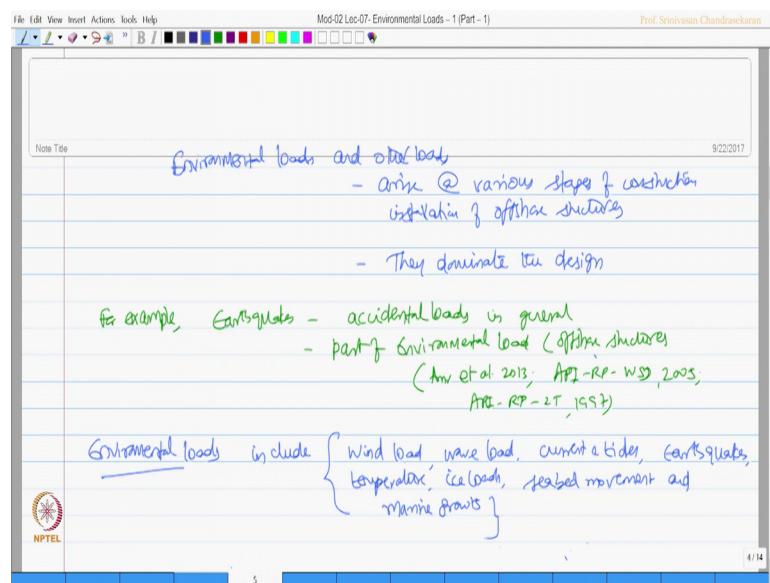 File Edit View Insert Actions Tools Help
Mod-02 Lec-07- Environmental Loads – 1 (Part – 1)
Prof. Srinivasan Chandrasekaran
B I
Note Title
9/22/2017
Environmental loads and other loads
- arise @ various stages of construction
installation of offshore structures
- They dominate the design
For example, Earthquakes - accidental loads in general
- part of Environmental load (offshore structures
et al. 2013; API-RP-WSD, 2005;
API-RP-2T, 1997)
Environmental loads include { wind load, wave load, current & tides, Earthquakes,
temperature, ice loads, seabed movement and
marine growth }
NPTEL
4 / 14
5